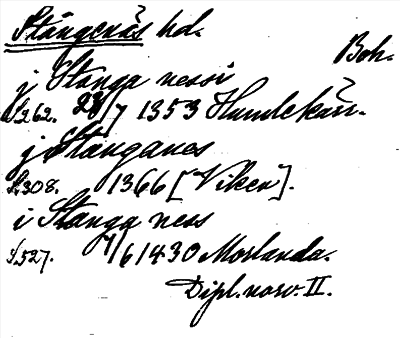 Stångenäs hd.
Boh.
j Stanga nessi
S. 262. 28/7 1353 Humlekärr.
j Stanganes
S. 308. 1366 [Viken].
i Stanga ness
S. 527. 1/6 1430 Morlanda.
Dipl. norv. II.